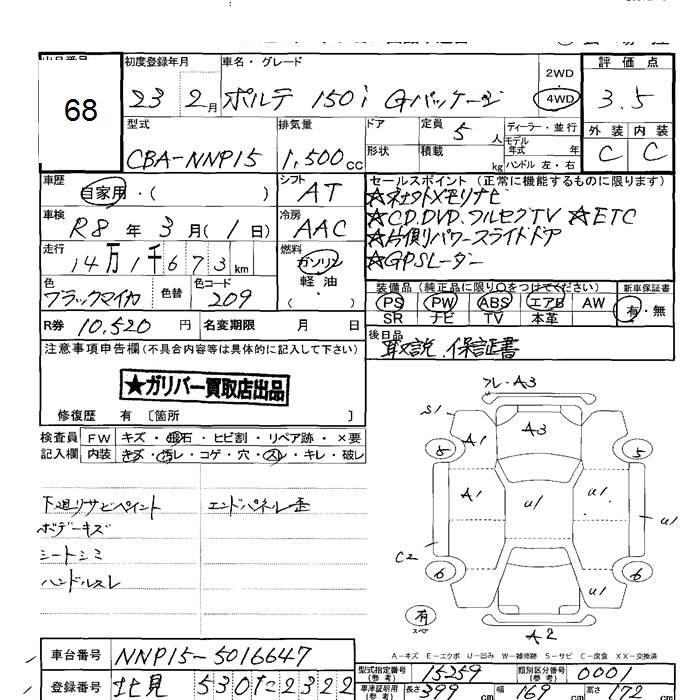 68
初度登録年月
23 2月
車名・グレード
ポルテ 150i Gパッケージ
2WD
4WD
評価点
3.5
型式
CBA-NNP15
排気量
1,500cc
ドア
形状
定員 5人
積載 kg
ディーラー・並行
モデル年式 年
ハンドル 左・右
外装 内装
C C
車歴
自家用・( )
シフト
AT
車検
R8年3月(1日)
冷房
AAC
走行
14万1千673km
燃料
ガソリン
軽油
( )
色
ブラックマイカ
色替
色コード
209
R券 10,520円
名変期限 月 日
セールスポイント(正常に機能するものに限ります)
☆ネオクトメモリナビ
☆CD.DVD.フルセグTV ☆ETC
☆片側パワースライドドア
☆GPSレーダー
装備品(純正品に限り○をつけてください) 新車保証書
PS PW ABS エアB AW 有・無
SR ナビ TV 本革
後日品
取説.保証書
注意事項申告欄(不具合内容等は具体的に記入して下さい)
★ガリバー買取店出品
修復歴 有〔箇所 〕
検査員記入欄
FW キズ・飛石・ヒビ割・リペア跡・×要
内装 キズ・汚レ・コゲ・穴・スレ・キレ・破レ
下廻リサビペイント
ボデーキズ
シートシミ
ハンドルスレ
エンドパネル歪
フレ・A3
S1
A1
A3
8
5
A1
U1
U1
U1
C2
6
6
U1
有
スペア
A2
A-キズ E-エクボ U-凹み W-補修跡 S-サビ C-腐食 XX-交換済
車台番号 NNP15-5016647
登録番号 北見 530 ひ 2322
型式指定番号(参考) 15259
類別区分番号(参考) 0001
車庫証明用(参考) 長さ399cm 幅169cm 高さ172cm